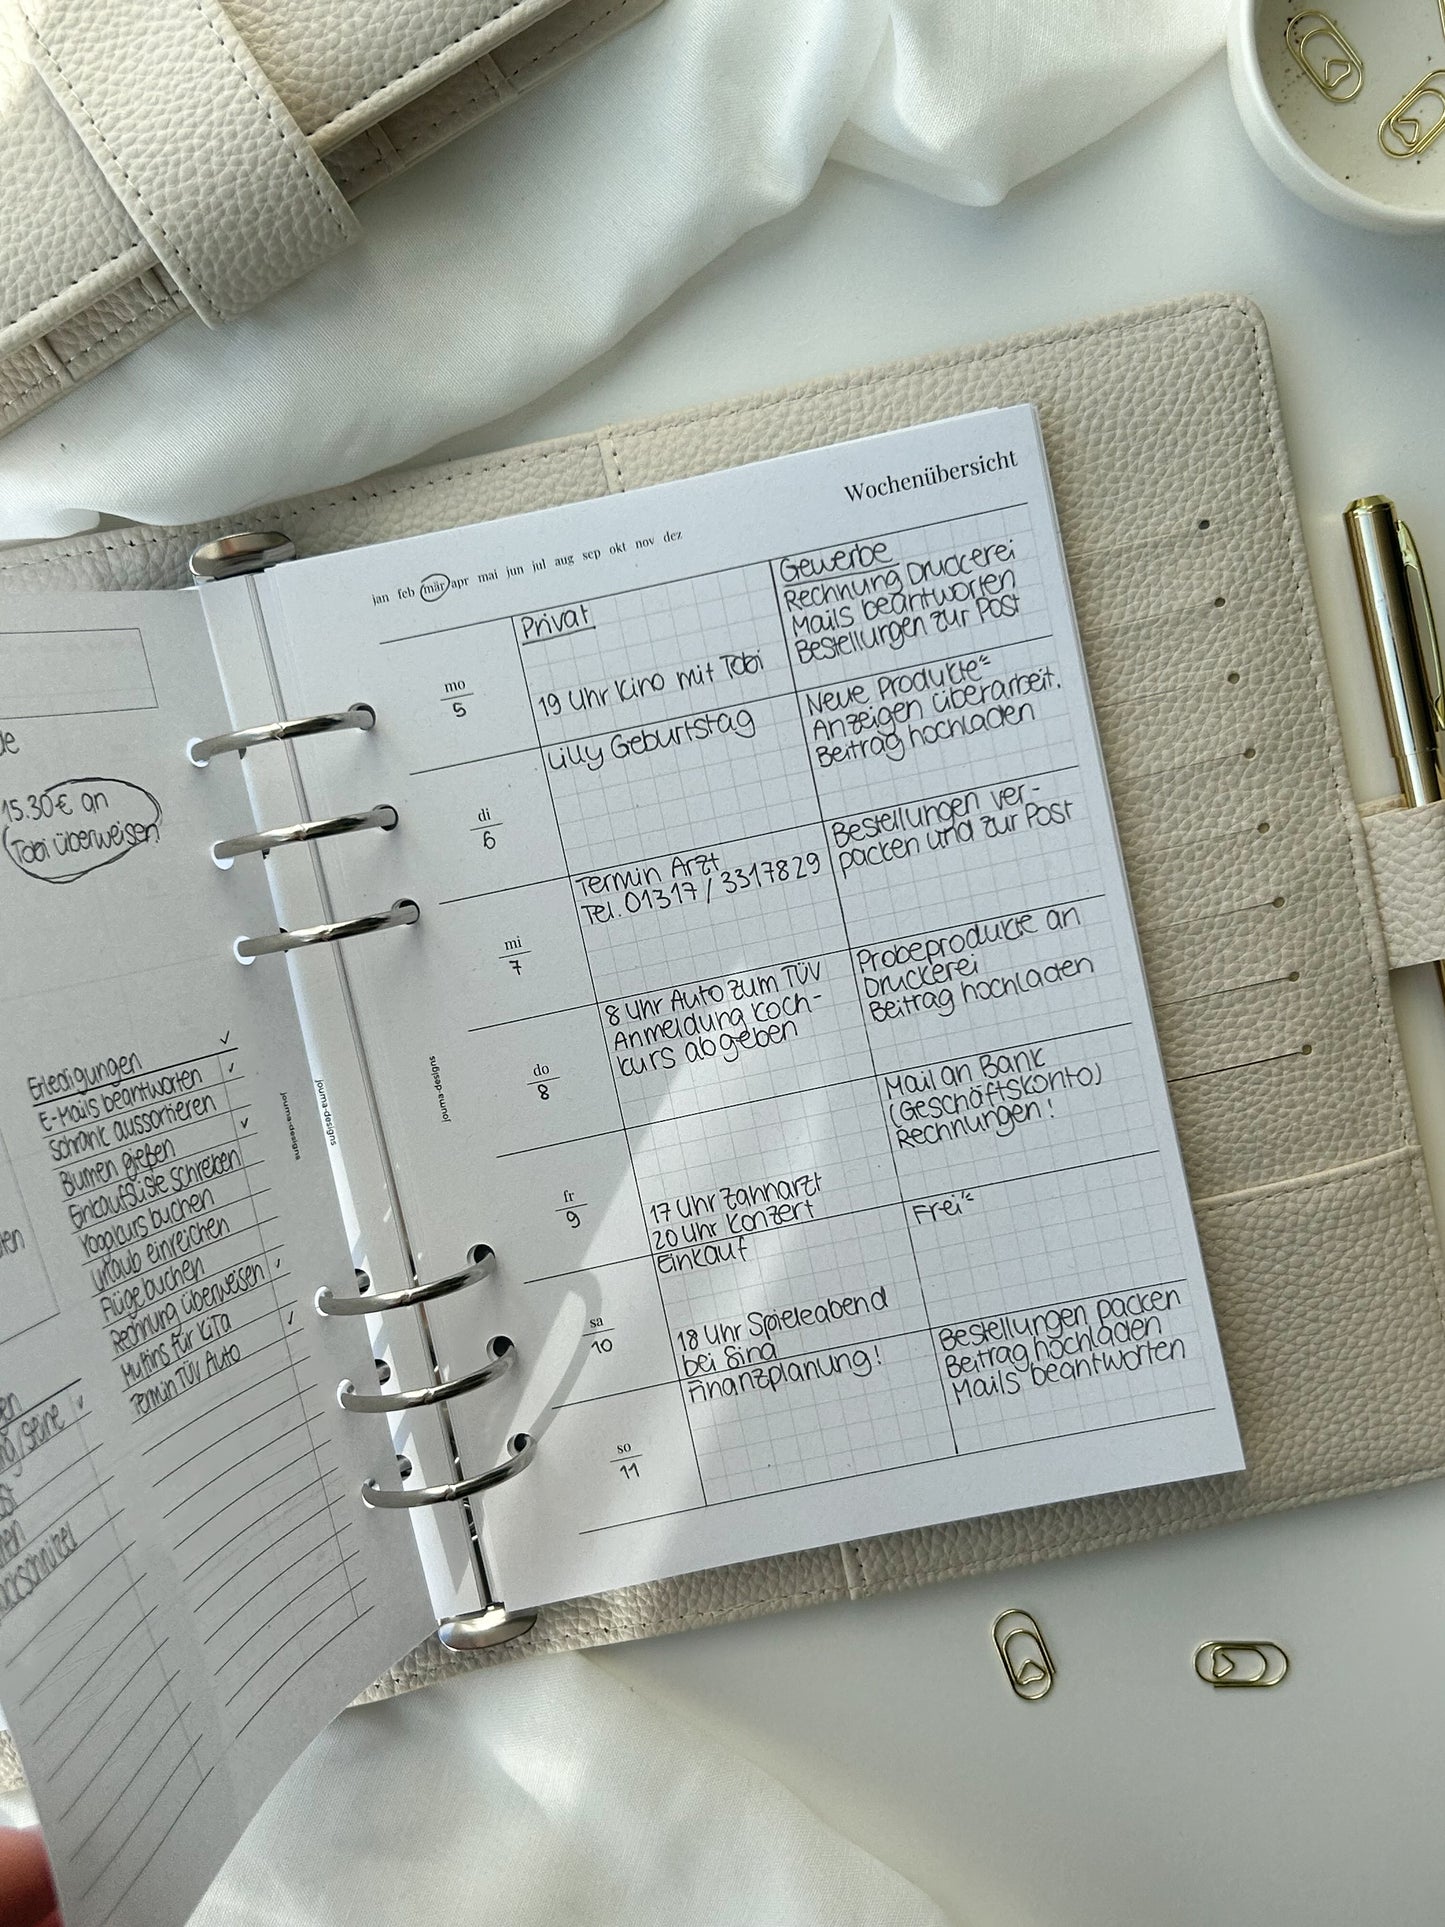 15.30€ an
Tobi überweisen
Erledigungen
E-Mails beantworten
Schrank aussortieren
Blumen gießen
Einkaufsliste schreiben
Yogakurs buchen
Urlaub einreichen
Flüge buchen
Rechnung überweisen
Muffins für KiTa
Termin TÜV Auto
journa-designs
journa-designs
journa-designs
Wochenübersicht
jan feb mär apr mai jun jul aug sep okt nov dez
Privat
Gewerbe
mo
5
19 Uhr Kino mit Tobi
Rechnung Druckerei
Mails beantworten
Bestellungen zur Post
di
6
Lilly Geburtstag
Neue Produkte
Anzeigen überarbeit.
Beitrag hochladen
mi
7
Termin Arzt
Tel. 01317 / 3317829
Bestellungen ver-
packen und zur Post
do
8
8 Uhr Auto zum TÜV
Anmeldung Koch-
kurs abgeben
Probeprodukte an
Druckerei
Beitrag hochladen
fr
9
17 Uhr Zahnarzt
20 Uhr Konzert
Mail an Bank
(Geschäftskonto)
Rechnungen!
sa
10
Einkauf
18 Uhr Spieleabend
bei Sina
Frei
so
11
Finanzplanung!
Bestellungen packen
Beitrag hochladen
Mails beantworten